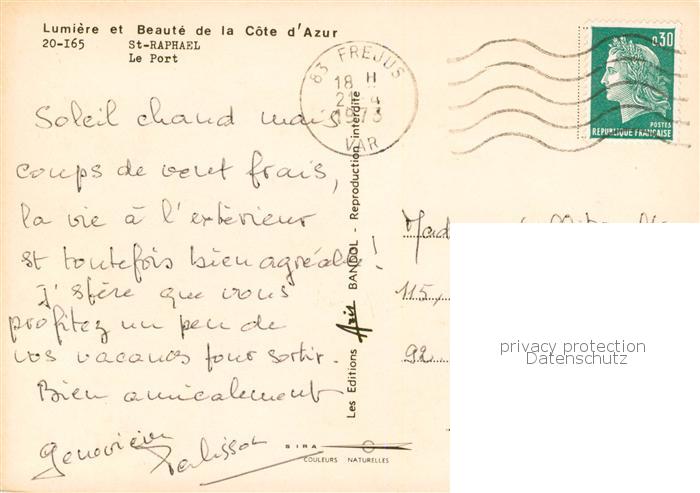 Lumière et Beauté de la Côte d'Azur
20-165 St-RAPHAEL
Le Port
83 FREJUS
18 H
21 4
1973
VAR
0,30
POSTES
REPUBLIQUE FRANÇAISE
Soleil chaud mais
coups de vent frais,
la vie à l'extérieur
st toutefois bien agréable!
J'espère que vous
profitez un peu de
vos vacances pour sortir.
Bien amicalement
Geneviève
Les Editions Aris BANDOL - Reproduction interdite
SIRA
COULEURS NATURELLES
115,
92
privacy protection
Datenschutz